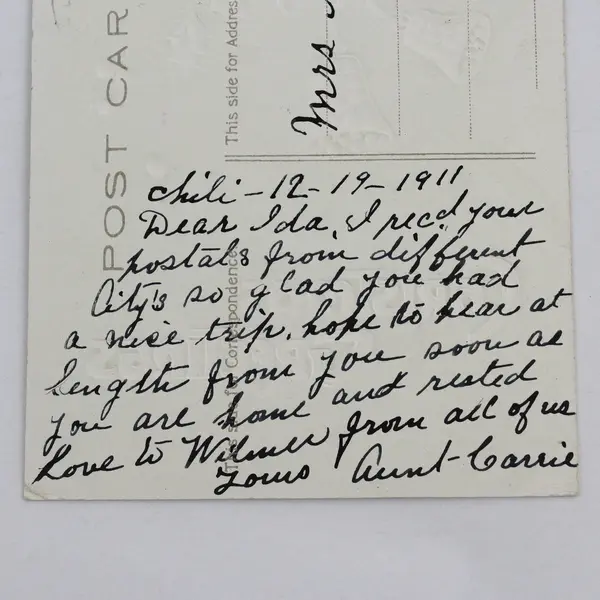 POST CAR
This side for Addres
Mrs
This side for Correspondence
Chili - 12 - 19 - 1911
Dear Ida, I recd your
postals from different
City's so glad you had
a nice trip. hope to hear at
length from you soon as
you are home and rested
Love to Wilmer from all of us
Yours Aunt - Carrie